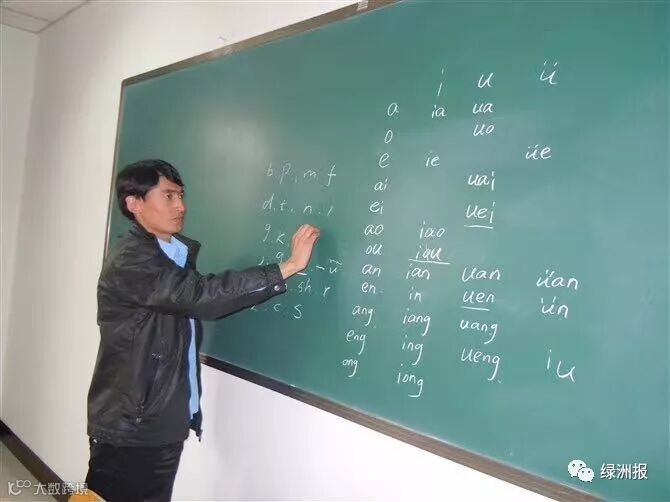 b.p.m.f
d.t.n.l
g.k
j.q - ü
.sh.r
z.c.s
i u ü
a ia ua
o uo
e ie üe
ai uai
ei uei
ao iao
ou iou
an ian uan üan
en in uen ün
ang iang uang
eng ing ueng iu
ong iong
大数跨境
绿洲报